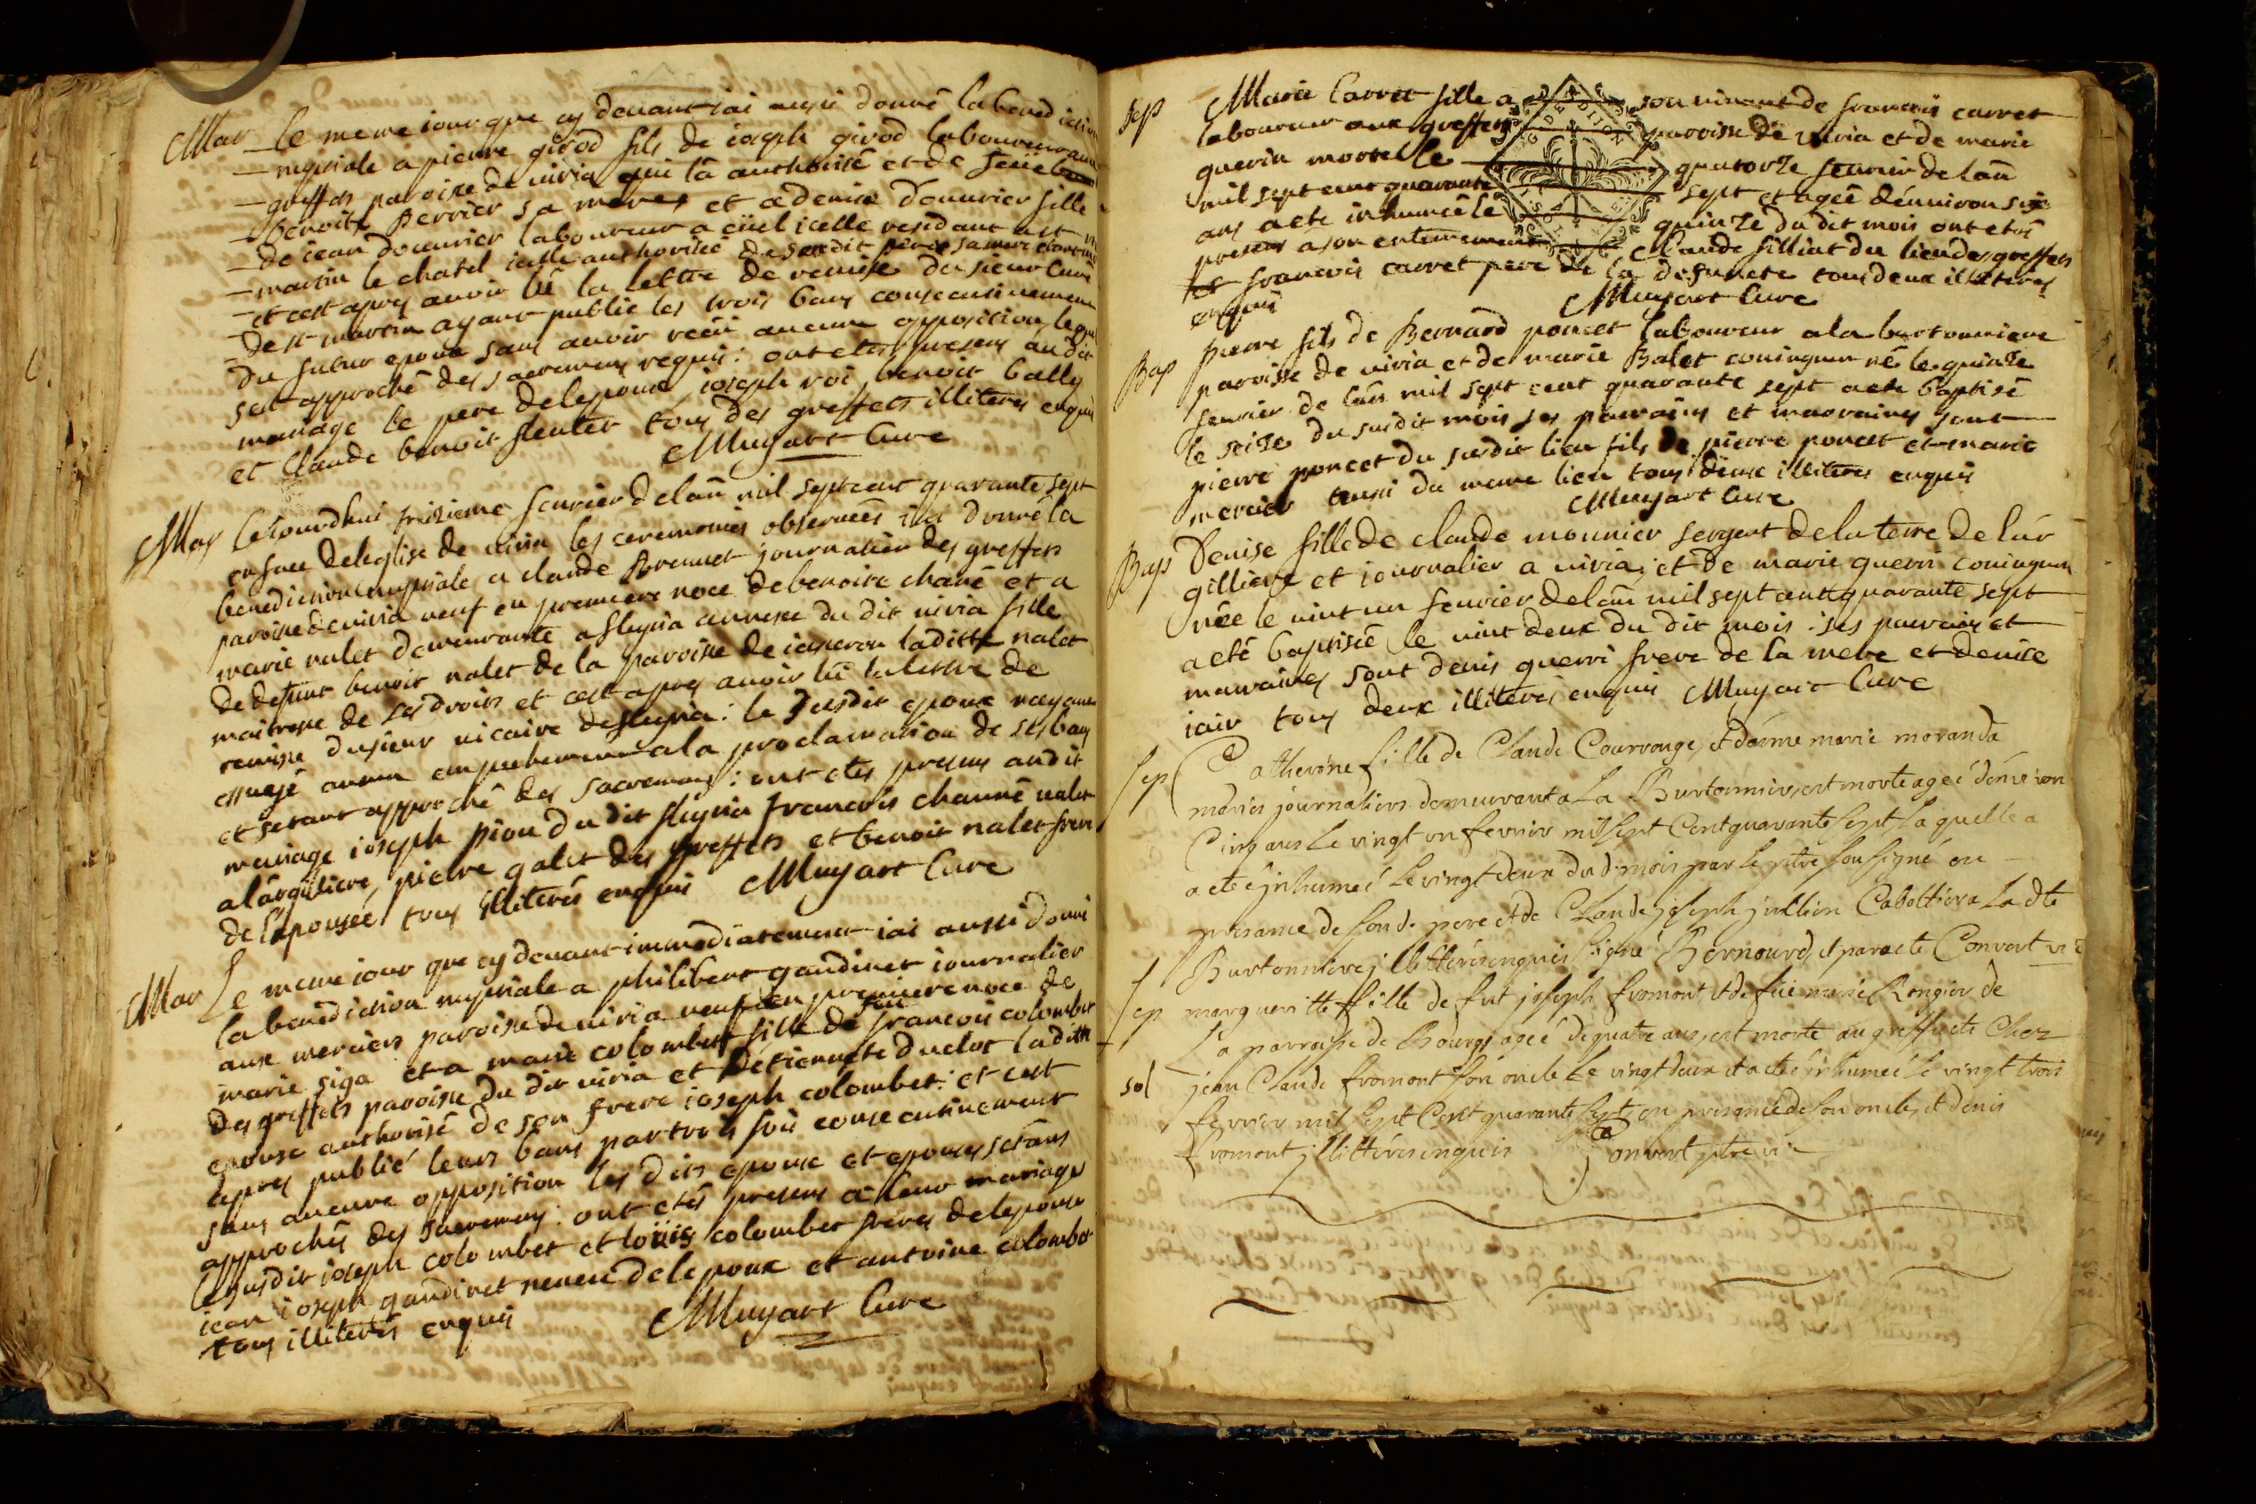 Mar le meme iour que cy devant iai aussi donné la benediction
nuptiale a pierre girod fils de ioseph girod laboureur aux
greffets paroisse de viria qui la authorisé et de feüe
benoite perrier sa mere et a denise douvrier fille
de iean douvrier laboureur a cüel icelle residant a st
martin le chatel icelle authorisée de sondit pere
et cest apres avoir lû la lettre de remise du sieur curé
de st martin ayant publié les trois bans consecutivement
du futur epoux sans avoir recu aucune opposition
sest approché des sacremens requis : ont etés presens audit
mariage le pere de lepoux ioseph roi benoit bally
et claude benoit tous des greffets illiterés enquis
Muyart Curé
Mar ceiourdhui treizieme fevrier de lan mil sept cent quarante sept
en face de leglise de viria les ceremonies observées iai donné la
benediction nuptiale a claude brennet journalier des greffets
paroisse de viria veuf en premiere noce de benoite chané et a
marie nalet demeurante a fleyria annexe du dit viria fille
de defunt benoit nalet de la paroisse de iasseron laditte nalet
maitresse de ses droits et cest apres avoir lû la lettre de
remise du sieur vicaire de fleyria : le susdit epoux nayant
essuyé aucun empechement a la proclamation de ses bans
et setant approché des sacremens : ont etés presens audit
mariage ioseph piou du dit fleyria francois channé valet
a largiliere, pierre galet des greffets et benoit nalet frere
de lepousée tous illiterés enquis Muyart Curé
Mar Le meme iour que cy devant immediatement iai aussi donné
la benediction nuptiale a philibert gaudinet iournalier
aux merciers paroisse de viria veuf en premiere noce de
marie siga et a marie colombet fille de feu francois colombet
des greffets paroisse du dit viria et detiennete duclos laditte
epouse authorisé de son frere ioseph colombet : et cest
apres publié leurs bans par trois fois consecutivement
sans aucune opposition les dits epoux et epouse setans
approchés des sacremens : ont etés presens a leur mariage
le susdit ioseph colombet et loüis colombet freres de lepouse
iean ioseph gaudinet neveu de lepoux et antoine colombet
tous illiterés enquis Muyart Curé
Sep Marie Carret fille a son vivant de francois carret
laboureur aux greffets paroisse de viria et de marie
guerin morte le quatorze fevrier de lan
mil sept cent quarante sept et agée denviron six
ans a ete inhumée le quinze du dit mois ont etés
presens a son enterrement Claude silliat du lieu des greffets
et francois carret pere de la defuncte tous deux illiterés
enquis Muyart Curé
Bap pierre fils de Bernard poncet laboureur a la burtonniere
paroisse de viria et de marie Balet coniugues né le quinze
fevrier de lan mil sept cent quarante sept a ete baptisé
le seize du susdit mois ses parrains et marraines sont
pierre poncet du susdit lieu fils de pierre poncet et marie
mercier aussi du meme lieu tous deux illiterés enquis
Muyart Curé
Bap Denise fille de claude monnier sergent de la terre de lar
gilliere et iournalier a viria, et de marie querri coniugues
née le vint un fevrier de lan mil sept cent quarante sept
a eté baptisée le vint deux du dit mois : ses parrains et
marraines sont denis querri frere de la mere et denise
iair tous deux illiterés enquis Muyart Curé
Sep Catherine fille de Claude Courvouge, et danne marie moranda
mariés journaliers demeurant a La Burtonniere, est morte ageé denviron
Cinq ans Le vingt un fevrier mil sept Cent quarante sept, Laquelle a
a eteé jnhumeé Le vingt deux dud. mois par Le ptre soussigné en
presance de son d. pere et de Claude joseph jullien Cabottier a La dte
Burtonniere jllittérés enquis signé Bernourd, et par acte Convert vic
Sep margueritte fille de fut joseph fromont, et de füe marie Rongier de
La parroisse de Bourg, ageé de quatre ans, est morte au greffets Chez
sol jean Claude fromont son oncle Le vingt deux et a eteé jnhumeé le vingt trois
fevrier mil sept Cent quarante sept, en presance de son oncle, et denis
fromont jllittérés enquis Convert ptre vic